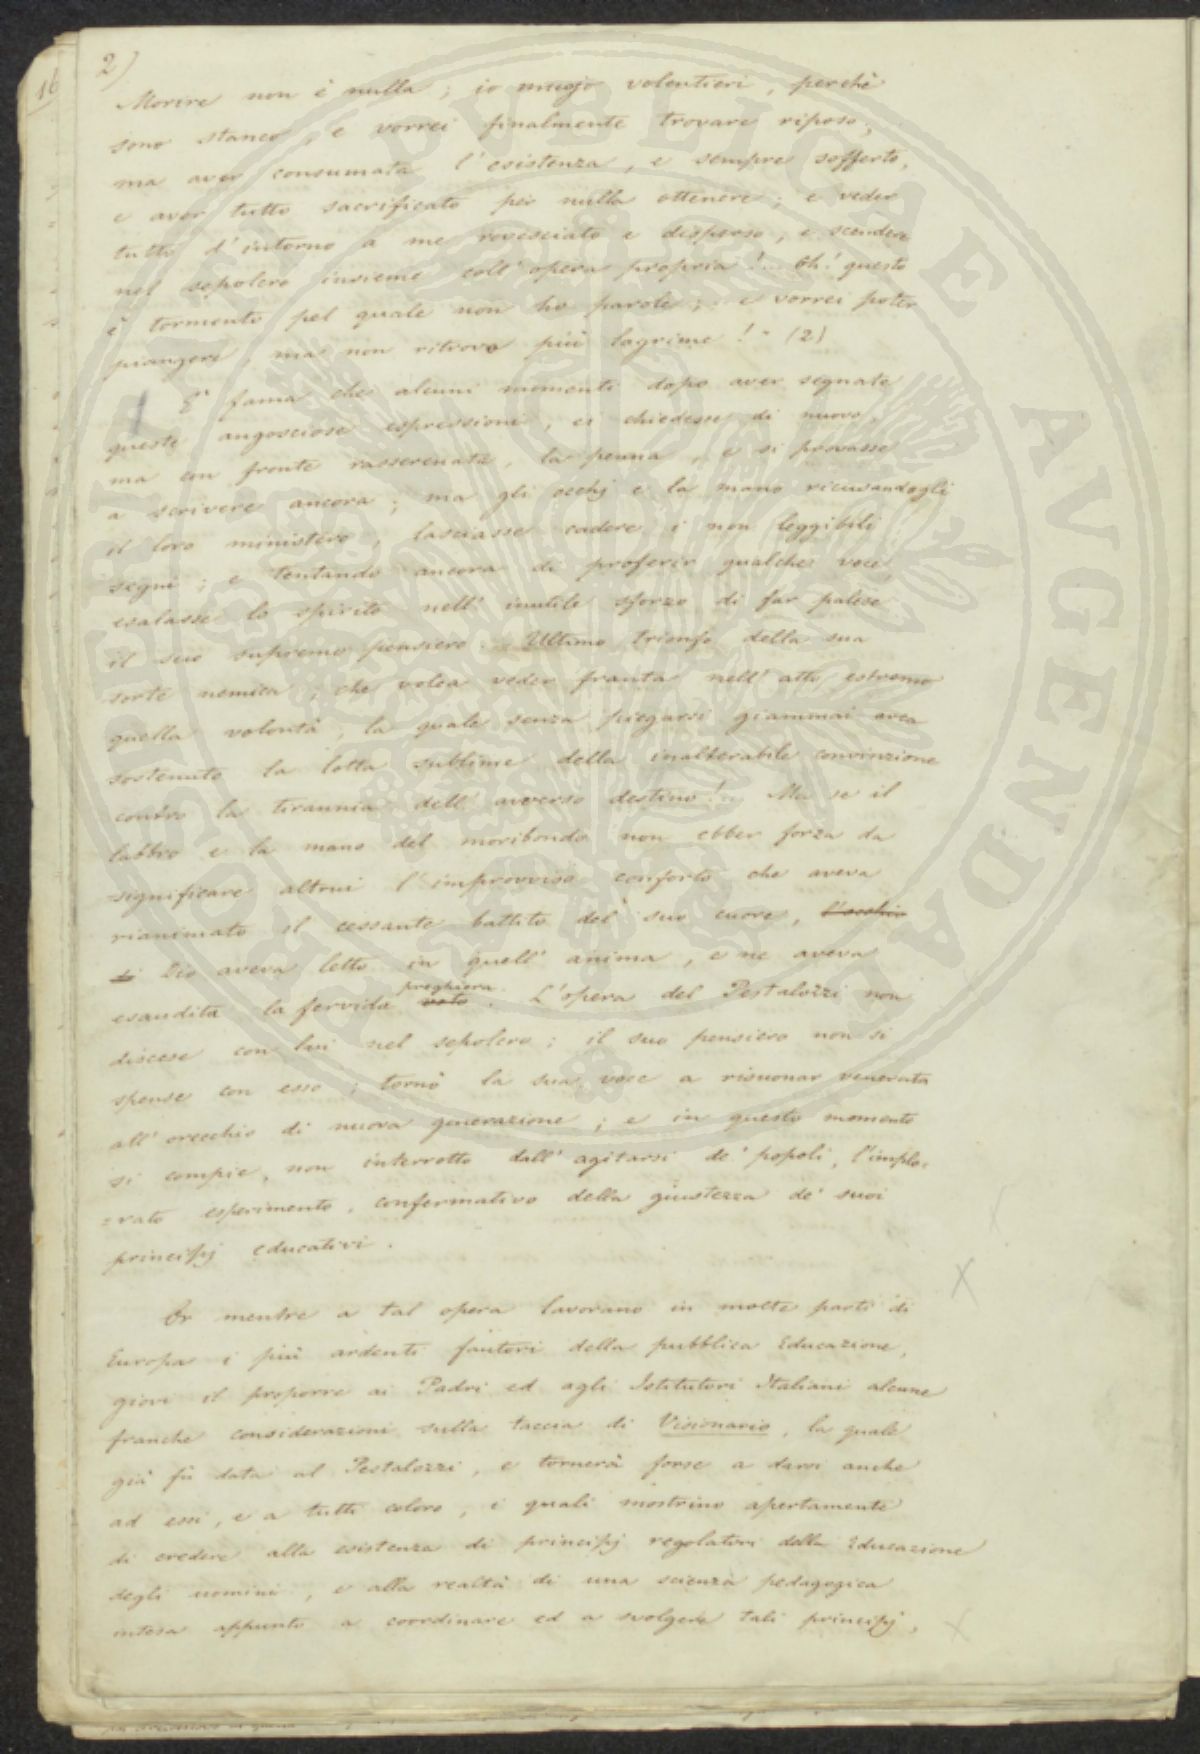 16
2)
Morire non è nulla; io muojo volentieri, perchè
sono stanco, e vorrei finalmente trovare riposo;
ma aver consumata l'esistenza, e sempre sofferto,
e aver tutto sacrificato per nulla ottenere; e veder
tutto d'intorno a me rovesciato e disperso, e scendere
nel sepolcro insieme coll'opera propria!.. Oh! questo
è tormento pel quale non ho parole; e vorrei poter
piangere, ma non ritrovo più lagrime!" (2)
E' fama che alcuni momenti dopo aver segnate
queste angosciose espressioni, ei chiedesse di nuovo,
ma con fronte rasserenata, la penna, e si provasse
a scrivere ancora; ma gli occhj e la mano ricusandogli
il loro ministero, lasciasse cadere i non leggibili
segni; e tentando ancora di proferir qualche voce,
esalasse lo spirito nell'inutile sforzo di far palese
il suo supremo pensiero. Ultimo trionfo della sua
sorte nemica, che volea veder franta nell'atto estremo
quella volontà, la quale senza piegarsi giammai avea
sostenuto la lotta sublime della inalterabile convinzione
contro la tirannia dell'avverso destino! Ma se il
labbro e la mano del moribondo non ebber forza da
significare altrui l'improvviso conforto che aveva
rianimato il cessante battito del suo cuore, l'occhio
di Dio aveva letto in quell'anima, e ne aveva
preghiera
esaudita la fervida voto. L'opera del Pestalozzi non
discese con lui nel sepolcro; il suo pensiero non si
spense con esso; tornò la sua voce a risuonar venerata
all'orecchio di nuova generazione; e in questo momento
si compie, non interrotto dall'agitarsi de' popoli, l'implo=
=rato esperimento, confermativo della giustezza de' suoi
principj educativi.
Or mentre a tal opera lavorano in molte parti di
Europa i più ardenti fautori della pubblica Educazione,
giovi il proporre ai Padri ed agli Istitutori Italiani alcune
franche considerazioni sulla taccia di Visionario, la quale
già fù data al Pestalozzi, e tornerà forse a darsi anche
ad essi, e a tutti coloro, i quali mostrino apertamente
di credere alla esistenza di principj regolatori della Educazione
degli uomini, e alla realtà di una scienza pedagogica
intesa appunto a coordinare ed a svolgere tali principj,
PROSPERITATI PVBLICAE AVGENDAE